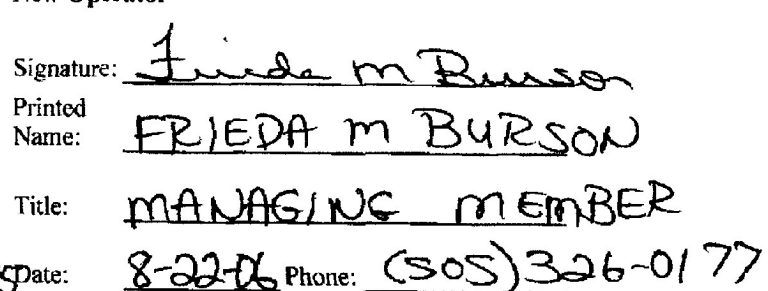 New Operator
Signature: Frieda m Burson
Printed
Name: FRIEDA m BURSON
Title: MANAGING MEMBER
Date: 8-22-06 Phone: (505) 326-0177